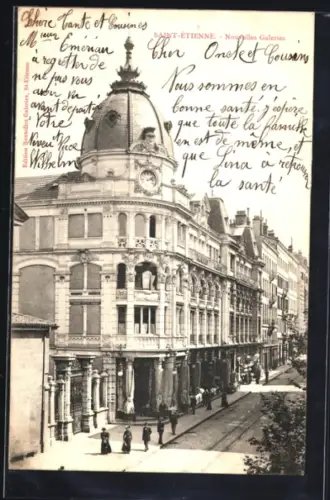 Chère Tante et Cousines
Mme Émérian
a regretter de
ne pas vous
avoir vu
avant départ
Votre
Neveu
Wilhelm
SAINT-ÉTIENNE - Nouvelles Galeries
Cher Oncle et Cousins
Nous sommes en
bonne santé. J'espère
que toute la famille
en est de même, et
que Lina à repris
la santé
Edition Nouvelles Galeries, St-Etienne